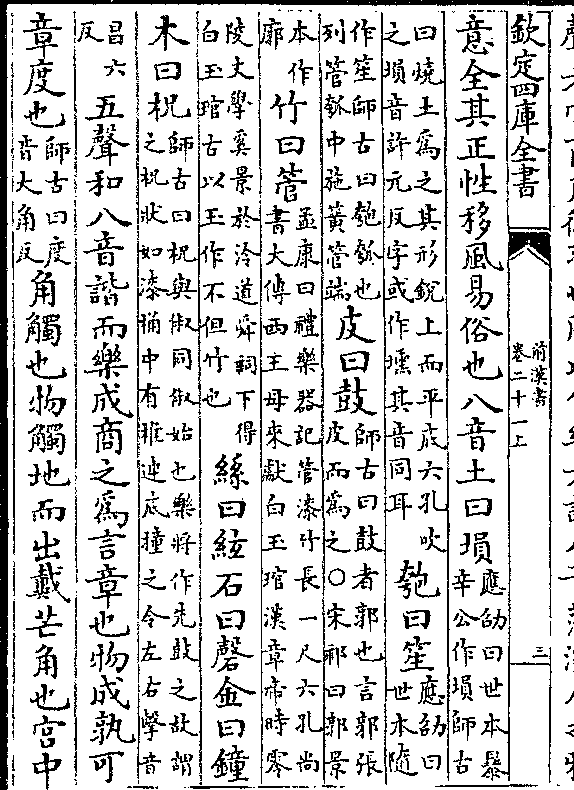 欽定四庫全書
前漢書
卷二十一上
三
意全其正性移風易俗也八音土曰塤
應劭曰世本
辛公作塤師古
曰燒土爲之其形銳上而平底六孔吹
之塤音許元反字或作壎其音同耳
匏曰笙
應劭曰
世本隨
作笙師古曰匏瓠也
列管瓠中施簧管端
皮曰鼓
師古曰鼓者郭也言郭張
皮而爲之○宋祁曰郭景
本作
廓
竹曰管
孟康曰禮樂器記管漆竹長一尺六孔尚
書大傳西王母來獻白玉琯漢章帝時零
陵文學奚景於泠道舜祠下得
白玉琯古以玉作不但竹也
絲曰絃石曰磬金曰鐘
木曰柷
師古曰柷與俶同俶始也樂將作先鼓之故謂
之柷狀如漆桶中有椎連底撞之令左右擊音
昌六
反
五聲和八音諧而樂成商之爲言章也物成孰可
章度也
師古曰度
音大角反
角觸也物觸地而出戴芒角也宫中